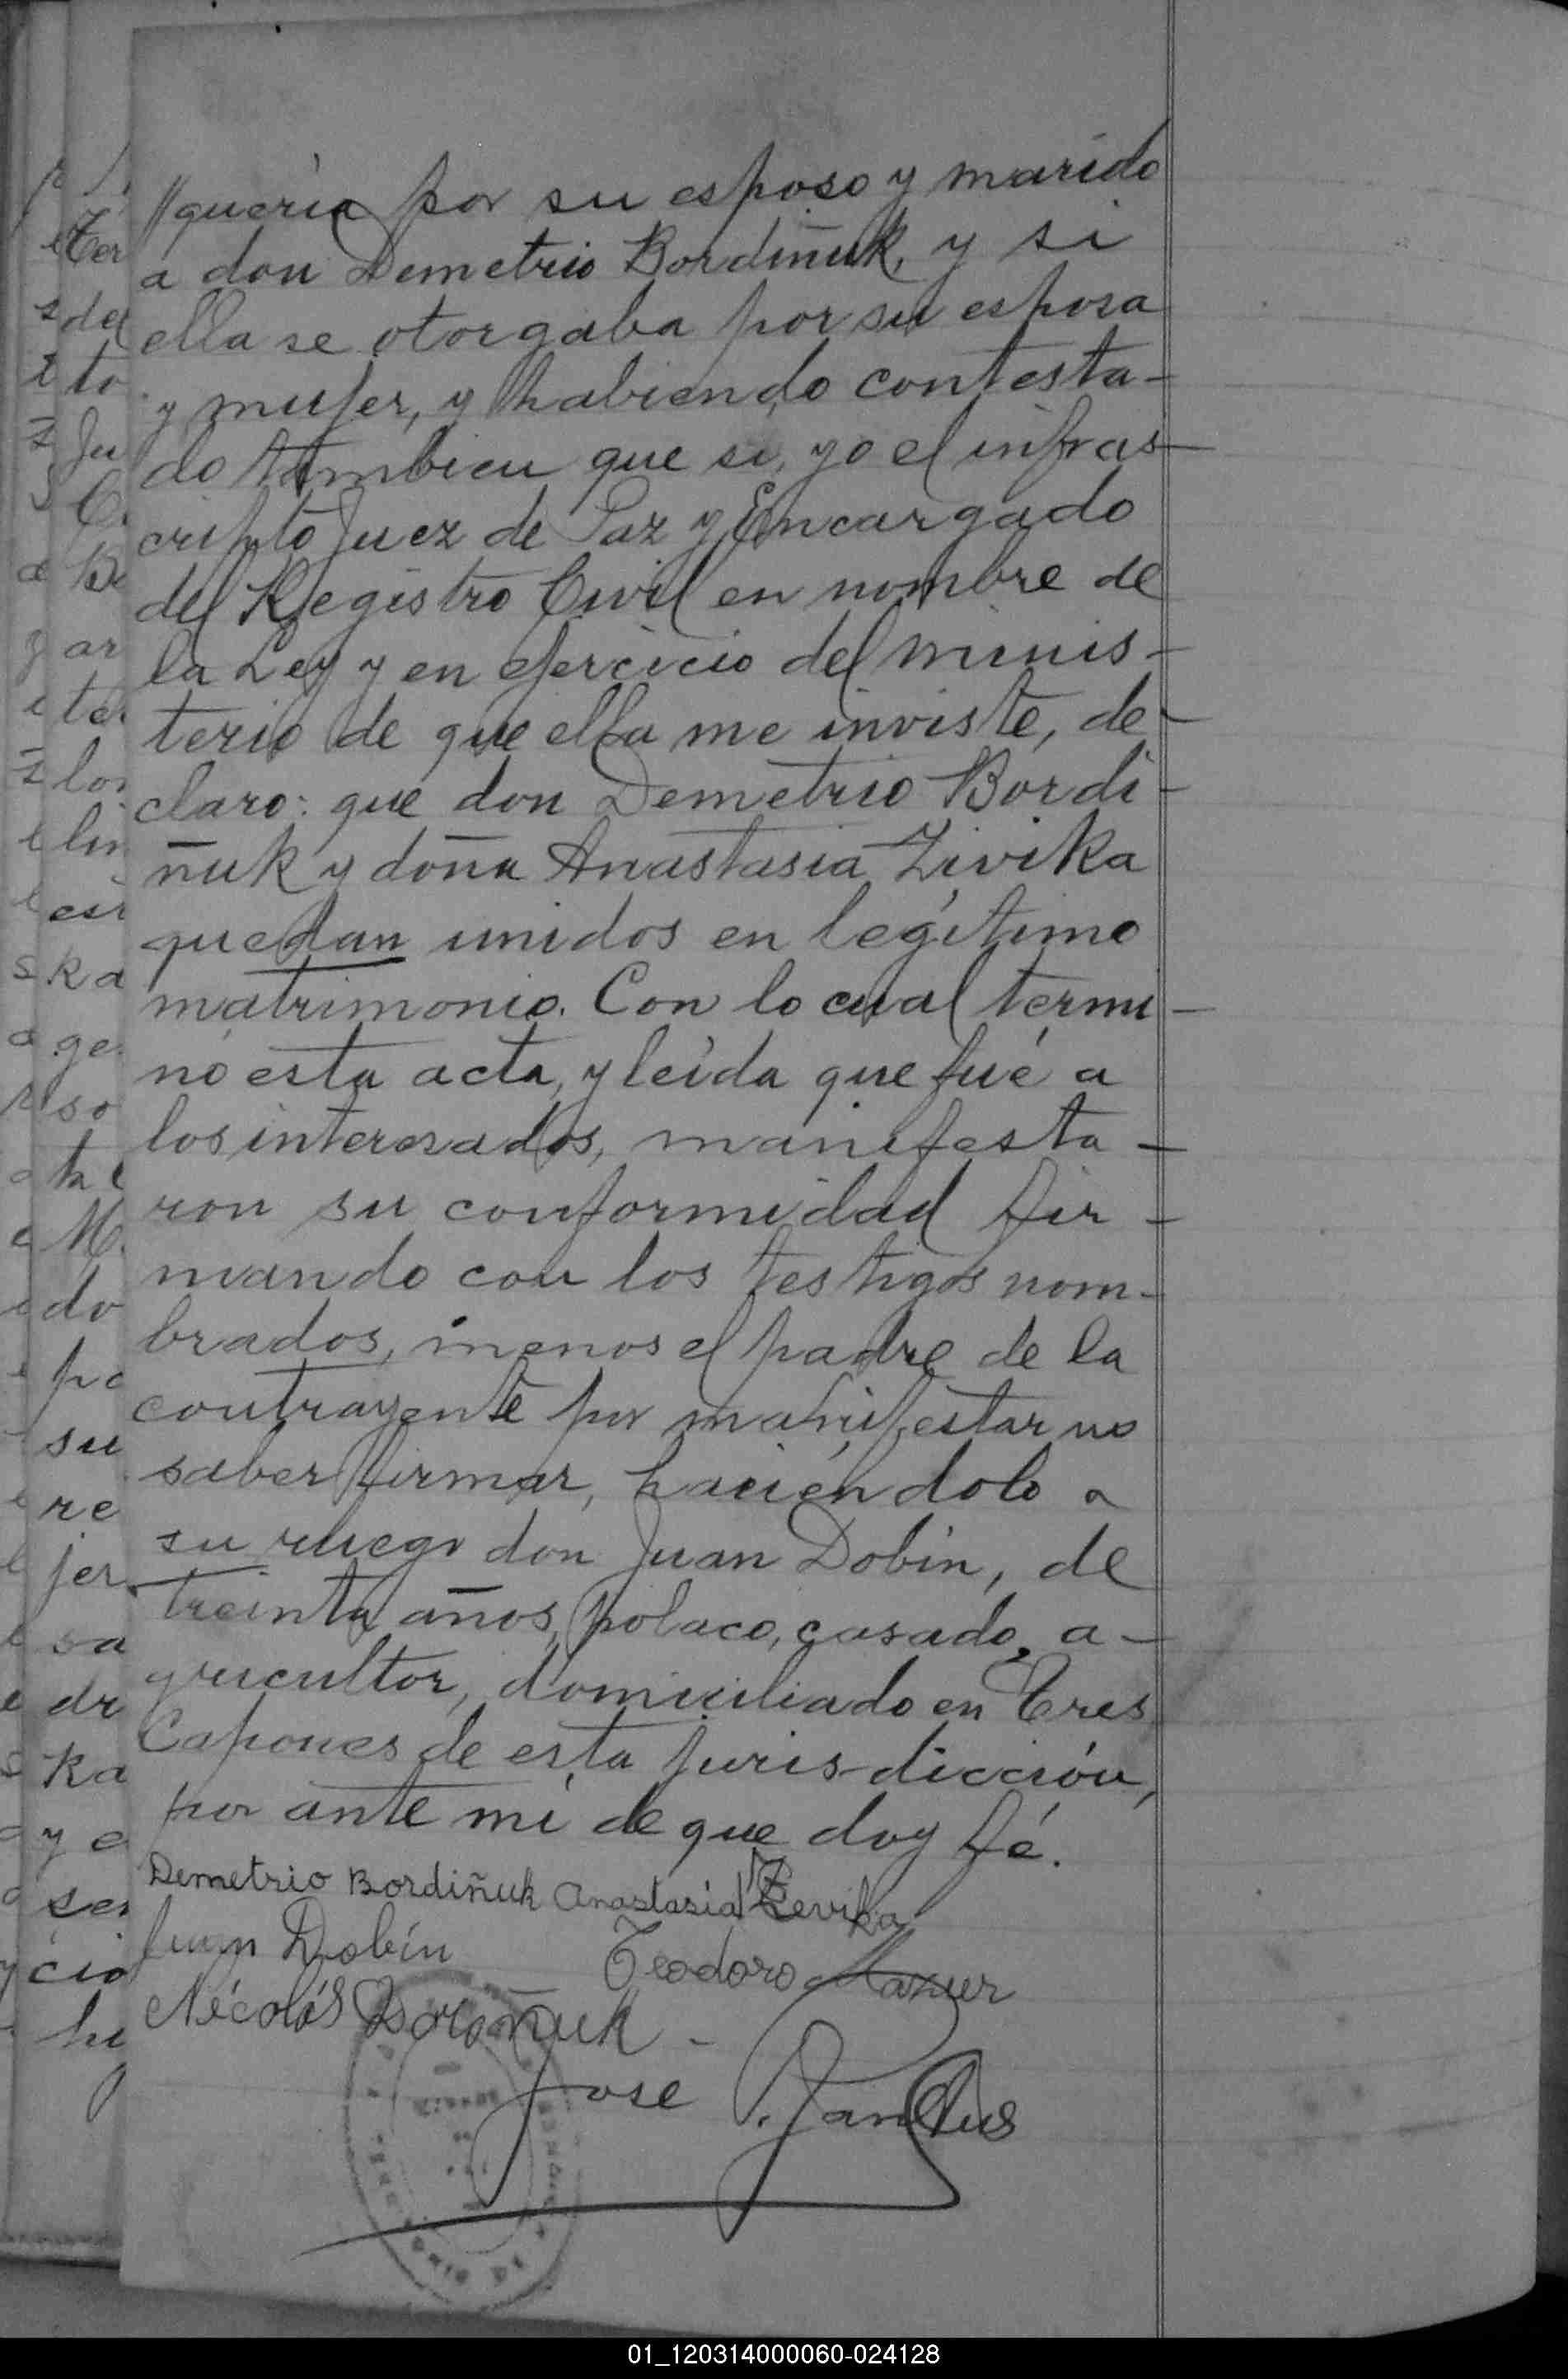 //quería por su esposo y marido
a don Demetrio Bordiñuk, y si
ella se otorgaba por su esposa
y mujer, y habiendo contesta-
do tambien que si, yo el infras-
cripto Juez de Paz y Encargado
del Registro Civil en nombre de
la Ley y en ejercicio del minis-
terio de que ella me inviste, de-
claro: que don Demetrio Bordi-
ñuk y doña Anastasia Zivika
quedan unidos en legítimo
matrimonio. Con lo cual termi-
nó esta acta, y leída que fué a
los interesados, manifesta-
ron su conformidad fir-
mando con los testigos nom-
brados, menos el padre de la
contrayente por manifestar no
saber firmar, haciéndolo a
su ruego don Juan Dobin, de
treinta años, polaco, casado, a-
gricultor, domiciliado en Tres
Capones de esta jurisdicción,
por ante mí de que doy fé.
Demetrio Bordiñuk Anastasia Zevika
Juan Dobín Teodoro
Nécolás
José
01_120314000060-024128